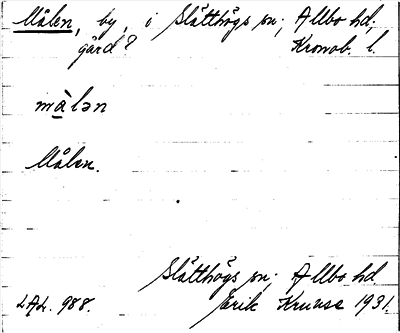 Målen, by, i Slätthögs sn; Allbo hd,
gård? Kronob. l.
màlǝn
Målen.
Slätthögs sn; Allbo hd.
LAL. 988. Erik Kruuse 1931.